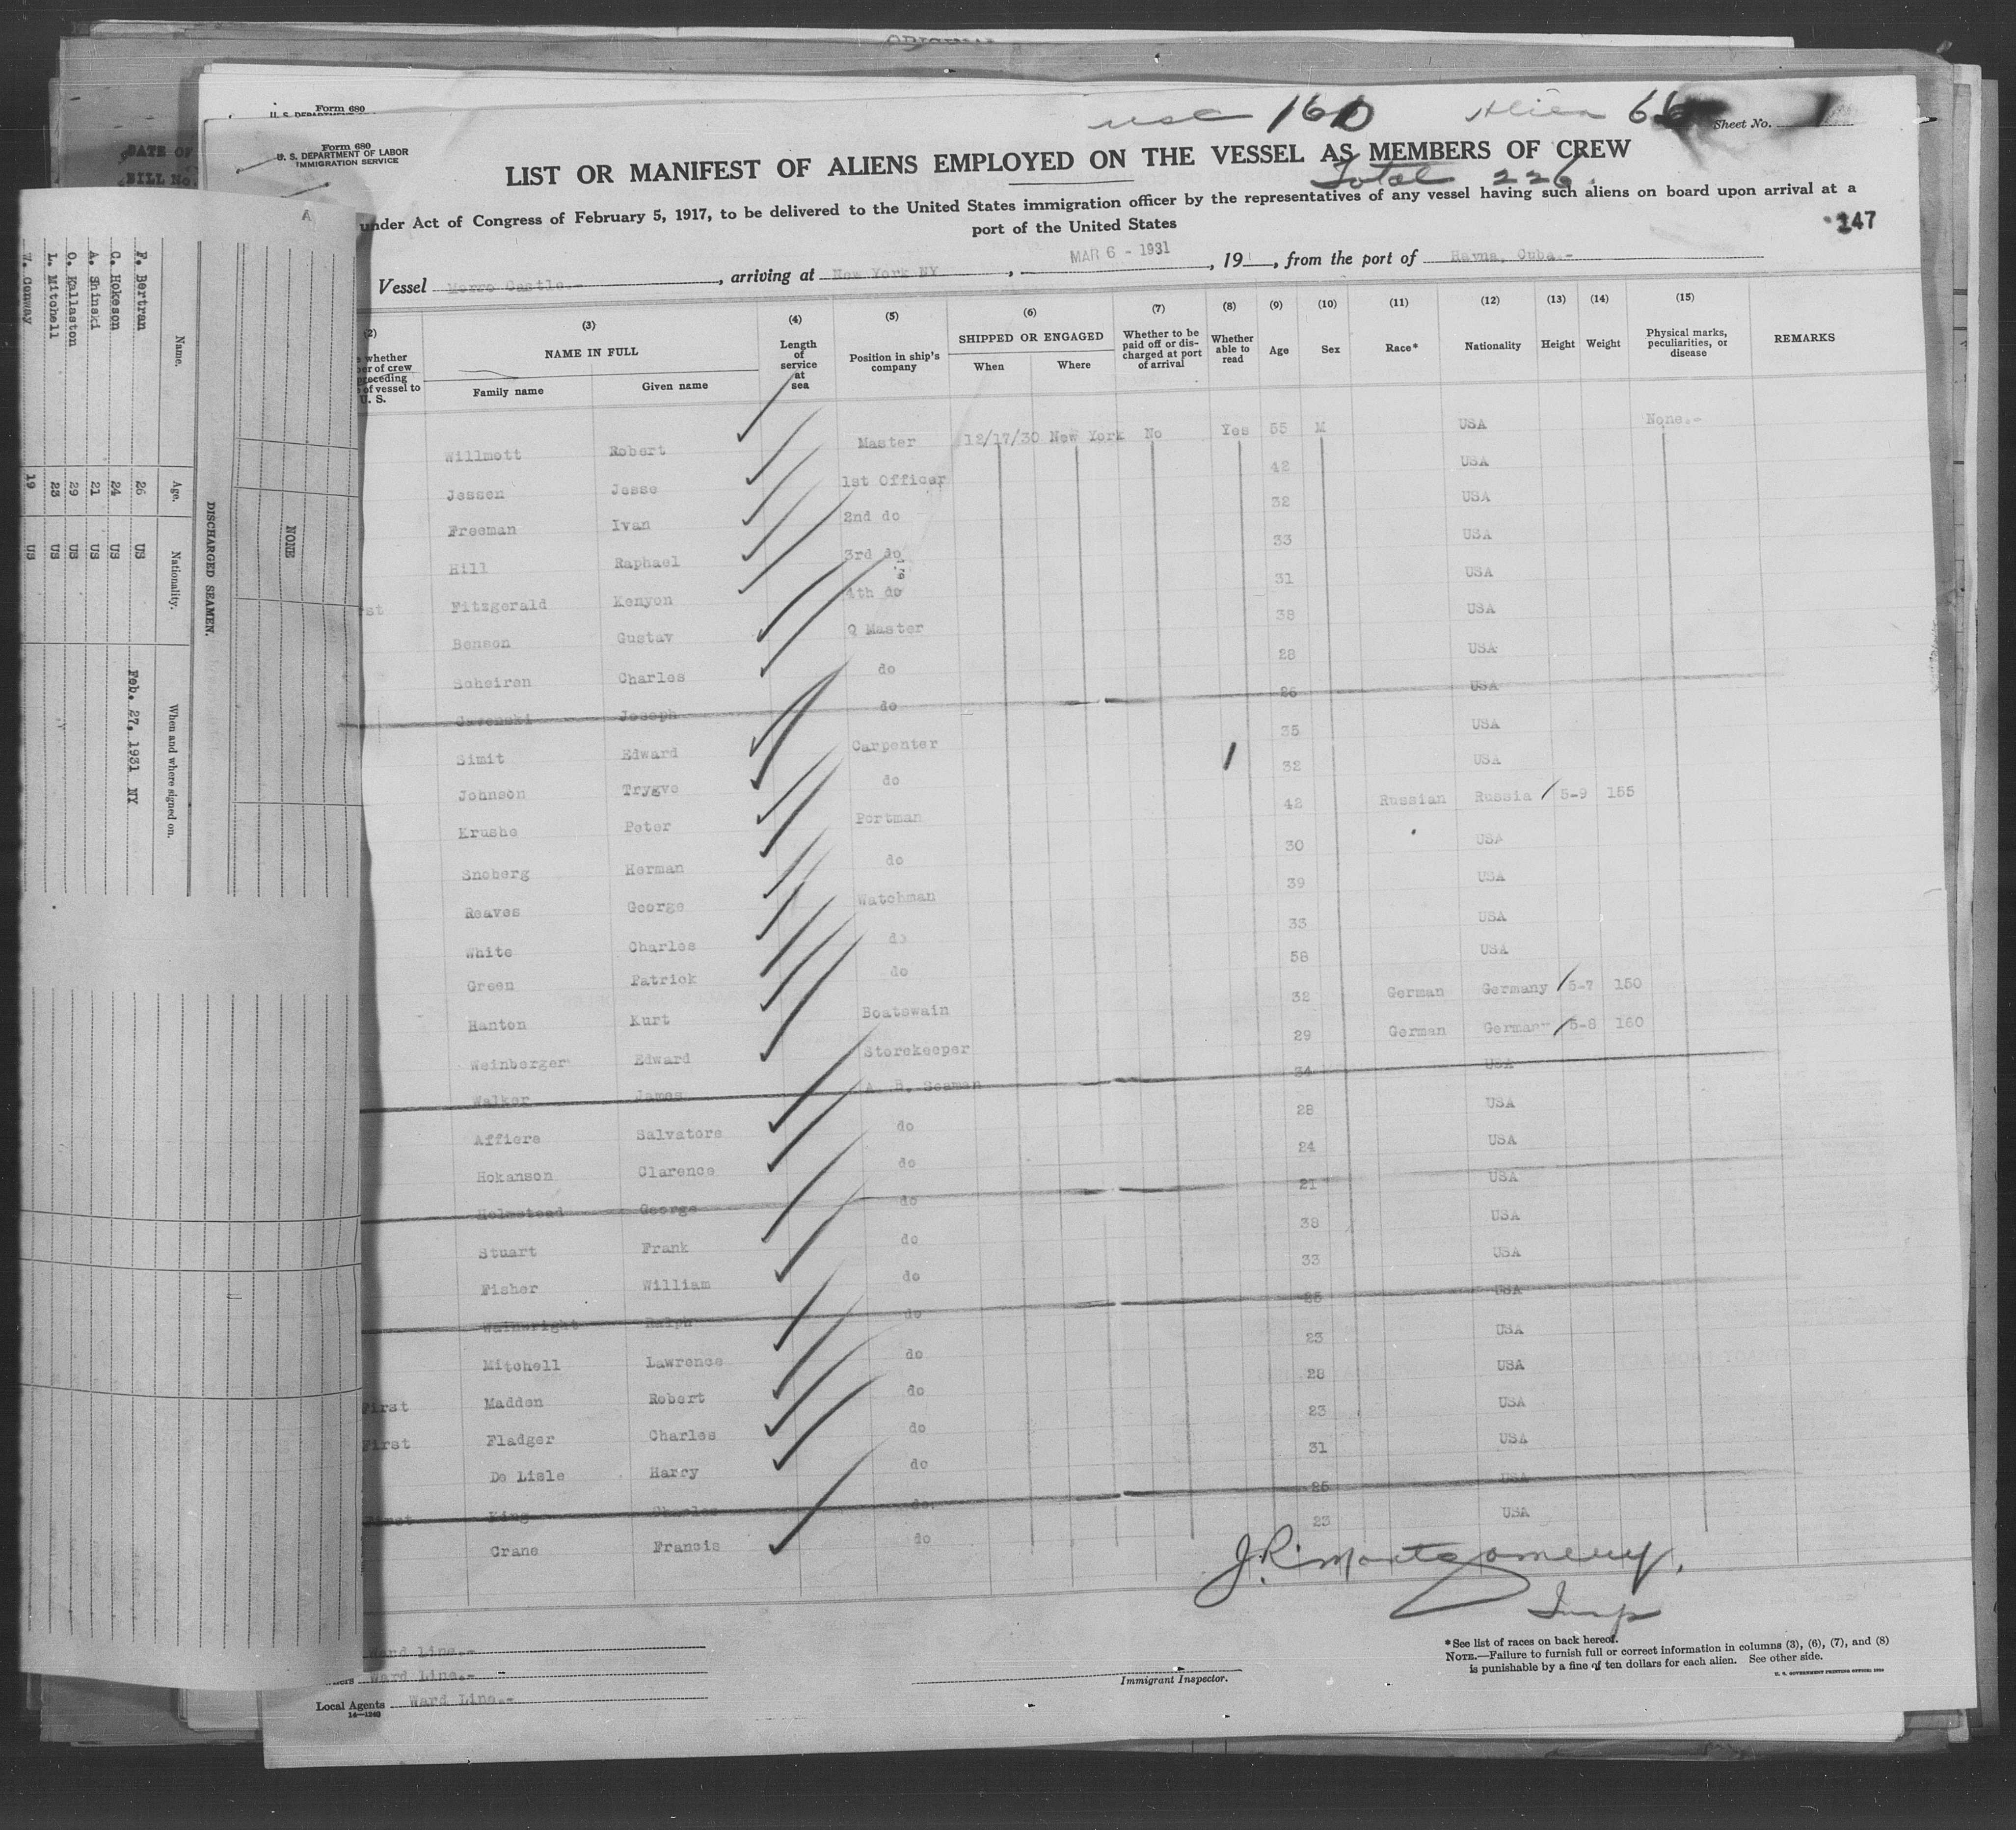 Form 680
Form 680
U. S. DEPARTMENT OF LABOR
IMMIGRATION SERVICE
usc 160 Alien 66
Sheet No. 1
LIST OR MANIFEST OF ALIENS EMPLOYED ON THE VESSEL AS MEMBERS OF CREW
Total 226.
under Act of Congress of February 5, 1917, to be delivered to the United States immigration officer by the representatives of any vessel having such aliens on board upon arrival at a
port of the United States
147
Vessel Morro Castle.-, arriving at New York NY, MAR 6 - 1931, 19, from the port of Havna, Cuba.-
(2) (3) (4) (5) (6) (7) (8) (9) (10) (11) (12) (13) (14) (15)
whether of crew preceding of vessel to U. S.
NAME IN FULL Family name Given name
Length of service at sea
Position in ship's company
SHIPPED OR ENGAGED When Where
Whether to be paid off or discharged at port of arrival
Whether able to read
Age Sex Race* Nationality Height Weight
Physical marks, peculiarities, or disease
REMARKS
Willmott Robert Master 12/17/30 New York No Yes 55 M USA None.-
Jessen Jesse 1st Officer 42 USA
Freeman Ivan 2nd do 32 USA
Hill Raphael 3rd do 33 USA
Fitzgerald Kenyon 4th do 31 USA
Benson Gustav Q Master 38 USA
Scheiren Charles do 28 USA
Joseph do 26 USA
Simit Edward Carpenter 35 USA
Johnson Trygve do 32 USA
Krushe Peter Portman 42 Russian Russia 5-9 155
Snoberg Herman do 30 USA
Reaves George Watchman 39 USA
White Charles do 33 USA
Green Patrick do 58 USA
Hanton Kurt Boatswain 32 German Germany 5-7 150
Weinberger Edward Storekeeper 29 German Germany 5-8 160
Walker James A. B. Seaman 34 USA
Affiere Salvatore do 28 USA
Hokanson Clarence do 24 USA
Holmstead George do 21 USA
Stuart Frank do 38 USA
Fisher William do 33 USA
Wainwright Ralph do 25 USA
Mitchell Lawrence do 23 USA
First Madden Robert do 28 USA
First Fladger Charles do 23 USA
De Lisle Harry do 31 USA
First King Charles do. 25 USA
Crane Francis do 23 USA
J. R. Montgomery,
Insp
Ward Line.-
Ward Line.-
Local Agents Ward Line.-
14—1240
Immigrant Inspector.
*See list of races on back hereof.
NOTE.—Failure to furnish full or correct information in columns (3), (6), (7), and (8)
is punishable by a fine of ten dollars for each alien. See other side.
U. S. GOVERNMENT PRINTING OFFICE: 1930
DATE OF
BILL No.
A
NONE
DISCHARGED SEAMEN.
Name. Age. Nationality. When and where signed on.
F. Bertran 26 US Feb. 27, 1931 NY
C. Hokeson 24 US
A. Shinski 21 US
O. Kallaston 29 US
L. Mitchell 23 US
Conway 19 US